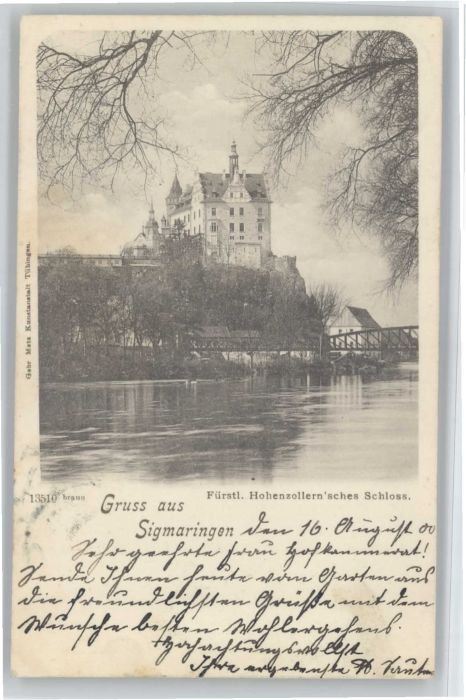 Gebr Metz Kunstanstalt Tübingen.
13510 braun
Fürstl. Hohenzollern'sches Schloss.
Gruss aus
Sigmaringen den 16. August 00
Sehr geehrte Frau Hofkammerat!
Sende Ihnen heute vom Garten aus
die freundlichsten Grüße mit dem
Wunsche besten Wohlergehens.
Hochachtungsvollst
Ihre ergebenste